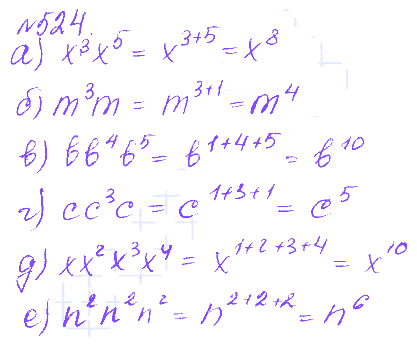 №524.
а) x³x⁵ = x³⁺⁵ = x⁸
б) m³m = m³⁺¹ = m⁴
в) bb⁴b⁵ = b¹⁺⁴⁺⁵ = b¹⁰
г) cc³c = c¹⁺³⁺¹ = c⁵
д) xx²x³x⁴ = x¹⁺²⁺³⁺⁴ = x¹⁰
е) n²n²n² = n²⁺²⁺² = n⁶